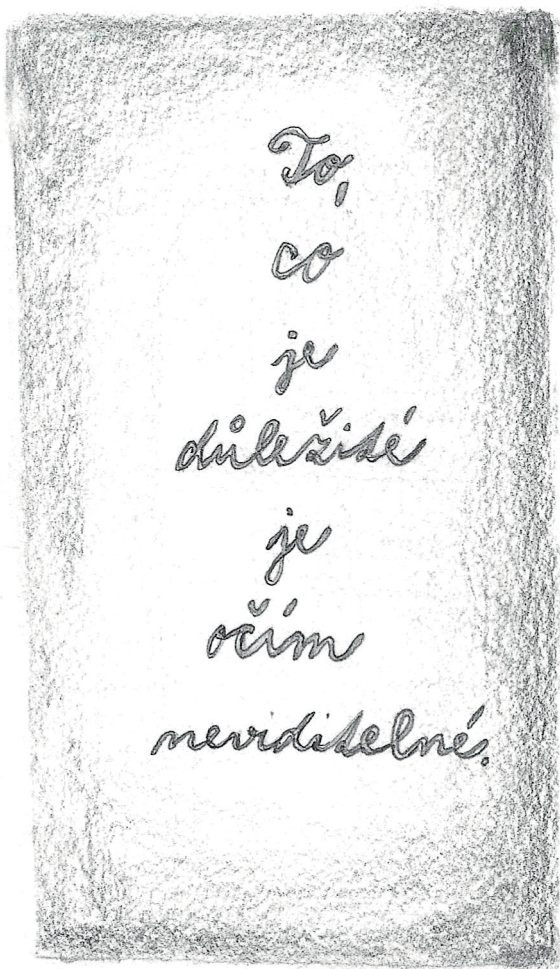 To,
co
je
důležité
je
očím
neviditelné.